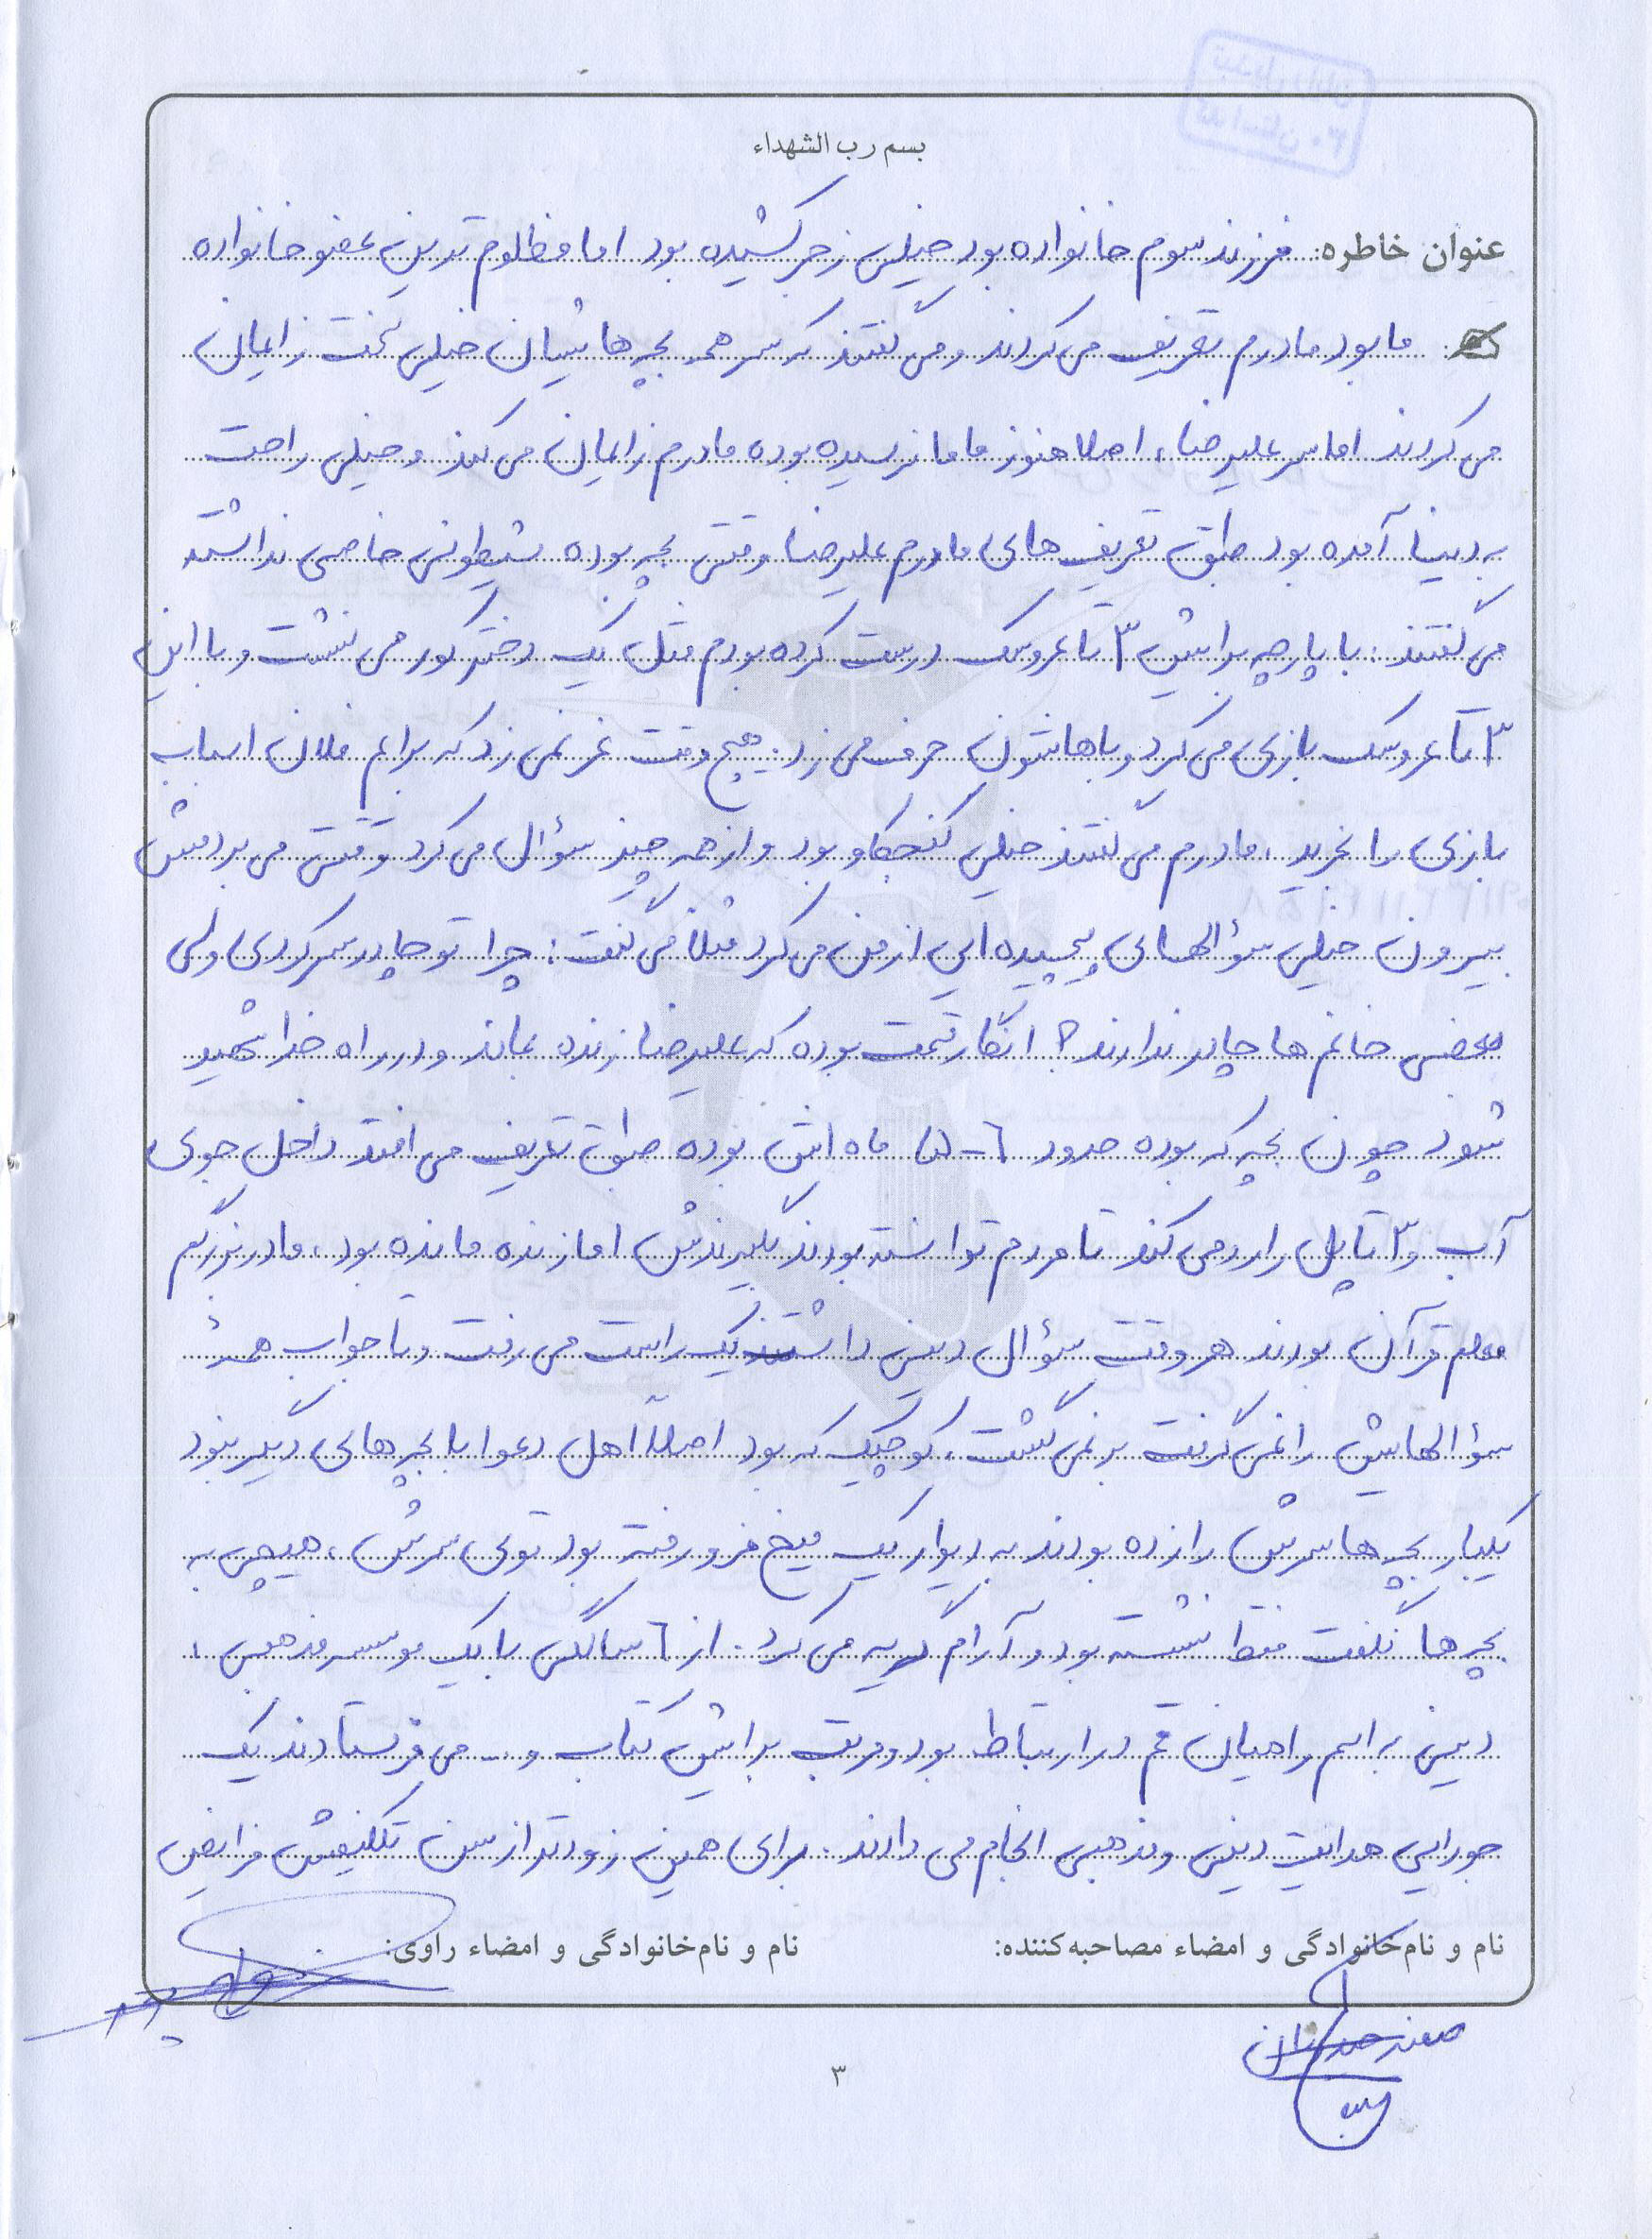 بسم رب الشهداء
عنوان خاطره: فرزند سوم خانواده بود خیلی زجر کشیده بود اما مظلوم ترین عضو خانواده
ما بود مادرم تعریف می کردند و می گفتند که سر همه بچه هاشان خیلی سخت زایمان
می کردند اما سر علیرضا، اصلا هنوز ماما نرسیده بوده مادرم زایمان می کند و خیلی راحت
به دنیا آمده بود طبق تعریف های مادرم علیرضا وقتی بچه بوده شیطونی خاصی نداشته
می گفتند: با پارچه برایش ۳ تا عروسک درست کرده بودم مثل یک دختر کور می نشست و با این
۳ تا عروسک بازی می کرد و باهاشون حرف می زد. هیچ وقت غر نمی زد که برایم فلان اسباب
بازی را بخرید، مادرم می گفتند خیلی کنجکاو بود و از همه چیز سؤال می کرد وقتی می بردمش
بیرون خیلی سؤالهای پیچیده ایی از من می کرد مثلا می گفت: چرا تو چادر سر کردی ولی
بعضی خانم ها چادر ندارند؟ انگار قسمت بوده که علیرضا زنده بماند و در راه خدا شهید
شود چون بچه که بوده حدود ۶-۵ ماه اش بوده طبق تعریف می افتد داخل جوی
آب و ۳ تا پل را رد می کند تا مردم توانسته بودند بگیرندش اما زنده مانده بود، مادربزرگم
معلم قرآن بودند هر وقت سؤال دینی داشت یک راست می رفت و تا جواب همهٔ
سؤالهایش را نمی گرفت بر نمی گشت، کوچیک که بود اصلاً اهل دعوا با بچه های دیگر نبود
یکبار بچه ها سرش را زده بودند به دیوار یک میخ فرو رفته بود توی سرش، هیچی به
بچه ها نگفت فقط نشسته بود و آرام گریه می کرد. از ۶ سالگی با یک موسسه مذهبی،
دینی به اسم راهیان قم در ارتباط بود و مرتب برایش کتاب و ... می فرستادند یک
جورایی هدایت دینی و مذهبی انجام می دادند. برای همین زودتر از سن تکلیفش فرایض
نام و نام‌خانوادگی و امضاء مصاحبه‌کننده:
نام و نام‌خانوادگی و امضاء راوی:
۳